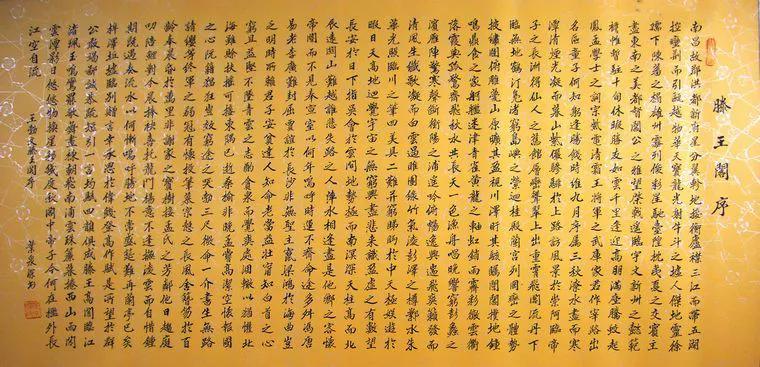 滕王閣序
南昌故郡洪都新府星分翼軫地接衡廬襟三江而帶五湖
控蠻荊而引甌越物華天寶龍光射牛斗之墟人傑地靈徐
孺下陳蕃之榻雄州霧列俊彩星馳臺隍枕夷夏之交賓主
盡東南之美都督閻公之雅望棨戟遙臨宇文新州之懿範
襜帷暫駐十旬休暇勝友如雲千里逢迎高朋滿座騰蛟起
鳳孟學士之詞宗紫電清霜王將軍之武庫家君作宰路出
名區童子何知躬逢勝餞時維九月序屬三秋潦水盡而寒
潭清煙光凝而暮山紫儼驂騑於上路訪風景於崇阿臨帝
子之長洲得仙人之舊館層巒聳翠上出重霄飛閣流丹下
臨無地鶴汀鳧渚窮島嶼之縈迴桂殿蘭宮列岡巒之體勢
披繡闥俯雕甍山原曠其盈視川澤盱其駭矚閭閻撲地鐘
鳴鼎食之家舸艦迷津青雀黃龍之軸虹銷雨霽彩徹雲衢
落霞與孤鶩齊飛秋水共長天一色漁舟唱晚響窮彭蠡之
濱雁陣驚寒聲斷衡陽之浦遙吟俯暢逸興遄飛爽籟發而
清風生纖歌凝而白雲遏睢園綠竹氣凌彭澤之樽鄴水朱
華光照臨川之筆四美具二難并窮睇眄於中天極娛遊於
暇日天高地迥覺宇宙之無窮興盡悲來識盈虛之有數望
長安於日下指吳會於雲間地勢極而南溟深天柱高而北
辰遠關山難越誰悲失路之人萍水相逢盡是他鄉之客懷
帝閽而不見奉宣室以何年嗚呼時運不齊命途多舛馮唐
易老李廣難封屈賈誼於長沙非無聖主竄梁鴻於海曲豈
乏明時所賴君子安貧達人知命老當益壯寧知白首之心
窮且益堅不墜青雲之志酌貪泉而覺爽處涸轍以猶懽北
海雖賒扶搖可接東隅已逝桑榆非晚孟嘗高潔空懷報國
之心阮籍猖狂豈效窮途之哭勃三尺微命一介書生無路
請纓等終軍之弱冠有懷投筆慕宗愨之長風舍簪笏於百
齡奉晨昏於萬里非謝家之寶樹接孟氏之芳鄰他日趨庭
叨陪鯉對今晨捧袂喜托龍門楊意不逢撫凌雲而自惜鍾
期既遇奏流水以何慚嗚呼勝地不常盛筵難再蘭亭已矣
梓澤坵墟臨別贈言幸承恩於偉餞登高作賦是所望於群
公敢竭鄙誠恭疏短引一言均賦四韻俱成滕王高閣臨江
渚佩玉鳴鸞罷歌舞畫棟朝飛南浦雲珠簾暮捲西山雨閑
雲潭影日悠悠物換星移幾度秋閣中帝子今何在檻外長
江空自流
王勃文滕王閣序